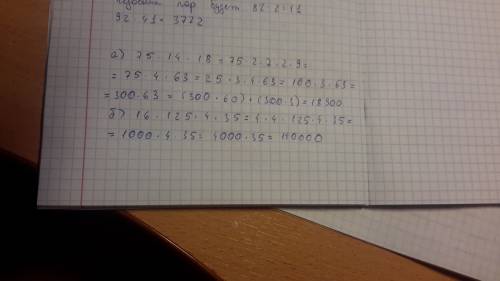 пар будет 82:2=41
92 · 41 = 3772
а) 75 · 14 · 18 = 75 · 2 · 7 · 2 · 9 =
= 75 · 4 · 63 = 25 · 3 · 4 · 63 = 100 · 3 · 63 =
= 300 · 63 = (300 · 60) + (300 · 3) = 18900
б) 16 · 125 · 4 · 35 = 4 · 4 · 125 · 4 · 35 =
= 1000 · 4 · 35 = 4000 · 35 = 140000